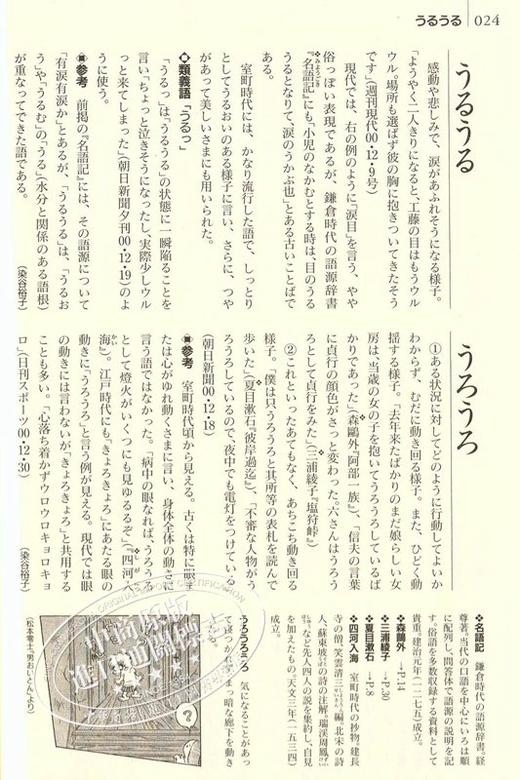 うるうる 024
うるうる
感動や悲しみで、涙があふれそうになる様子。
「ようやく二人きりになると、工藤の目はもうウル
ウル。場所も選ばず彼の胸に抱きついてきたそう
です」(週刊現代00・12・9号)
現代では、右の例のように「涙目」を言う、やや
俗っぽい表現であるが、鎌倉時代の語源辞書
『名語記』にも「小児のなかむとする時は、目のうる
うるとなりて、涙のうかぶ也」とある古いことばで
ある。
室町時代には、かなり流行した語で、しっとり
としてうるおいのある様子に言い、さらに、つや
があって美しいさまにも用いられた。
■類義語「うるっ」
「うるっ」は「うるうる」の状態に一瞬陥ることを
言い「ちょっと泣きそうになったし、実際少しウル
っと来てしまった」(朝日新聞夕刊00・12・19)のよ
うに使う。
■参考 前掲の『名語記』には、その語源について
「有涙有涙か」とあるが、「うるうる」は、「うるお
う」や「うるむ」の「うる」(水分と関係のある語根)
が重なってできた語である。
(染谷裕子)
うろうろ
①ある状況に対してどのように行動してよいか
わからず、むだに動き回る様子。また、ひどく動
揺する様子。「去年来たばかりのまだ娘らしい女
房は、当歳の女の子を抱いてうろうろしているば
かりであった」(森鷗外『阿部一族』)、「信夫の言葉
に貞行の顔色がさっと変わった。六さんはうろう
ろとして貞行をみた」(三浦綾子『塩狩峠』)
②これといったあてもなく、あちこち動き回る
様子。「僕は只うろうろと其所等の表札を読んで
歩いた」(夏目漱石『彼岸過迄』)、「不審な人物がう
ろうろしているので、夜中でも電灯をつけている」
(朝日新聞00・12・18)
■参考 室町時代頃から見える。古くは特に眼ま
たは心がゆれ動くさまに言い、身体全体の動きに
言う語ではなかった。「病中の眼なれば、うろうろ
として燈火がいくつにも見ゆるぞ」(『四河入
海』)。江戸時代にも「きょろきょろ」にあたる眼の
動きに「うろうろ」と言う例が見える。現代では眼
の動きには言わないが、「きょろきょろ」と共用する
ことも多い。「心落ち着かずウロウロキョロキョ
ロ」(日刊スポーツ00・12・30)
(染谷裕子)
❖名語記 鎌倉時代の語源辞書。経
尊著。当時の口語を中心にいろは順
に配列し、問答体で語源の説明を記
す。俗語を多数収録する資料として
貴重。建治元年(一二七五)成立。
❖森鷗外 →P.14
❖三浦綾子 →P.30
❖夏目漱石 →P.8
❖四河入海 室町時代の抄物。建長
寺の僧、笑雲清三編。北宋の詩
人、蘇東坡の詩の注解。瑞渓周鳳
など先人四人の説を集約し、自見
を加えたもの。天文三年(一五三四)
成立。
うろうろきょろ 気になることがあっ
て寝つかれず、まっ暗な廊下を動き
?
(松本零士『男おいどん』より)